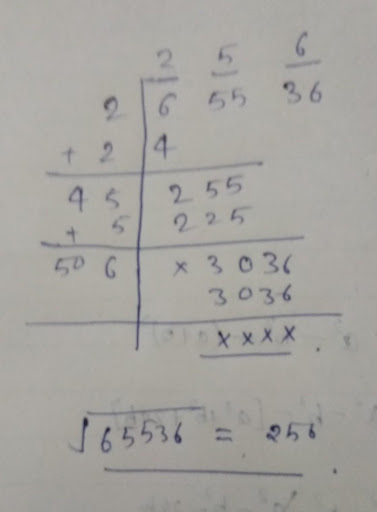 2 5 6
2 6 55 36
+ 2 4
4 5 2 55
+ 5 2 2 5
50 6 × 3 0 3 6
3 0 3 6
× × × ×.
√65536 = 256.